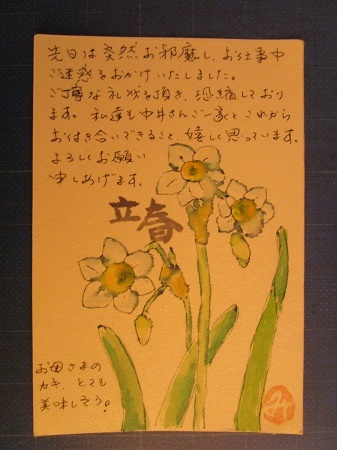 先日は突然お邪魔し、お仕事中
ご迷惑をおかけいたしました。
ご丁寧な礼状を頂き、恐縮しており
ます。私達も中井さんご一家とこれから
お付き合いできること、嬉しく思っています。
よろしくお願い
申しあげます。
立春
お母さまの
カキ、とても
美味しそう!